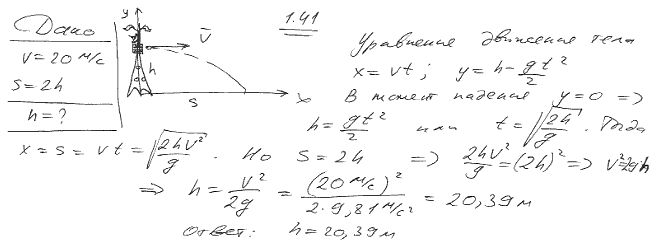 1.41
Дано
v = 20 м/с
s = 2h
h = ?
y
v
h
s
x
Уравнение движения тела
x = vt; y = h - gt²/2
В момент падения y = 0 =>
h = gt²/2 или t = √(2h/g). Тогда
x = s = vt = √(2hv²/g). Но s = 2h => 2hv²/g = (2h)² => v² = 2gh
=> h = v²/2g = (20 м/с)²/(2·9,81 м/с²) = 20,39 м
Ответ: h = 20,39 м